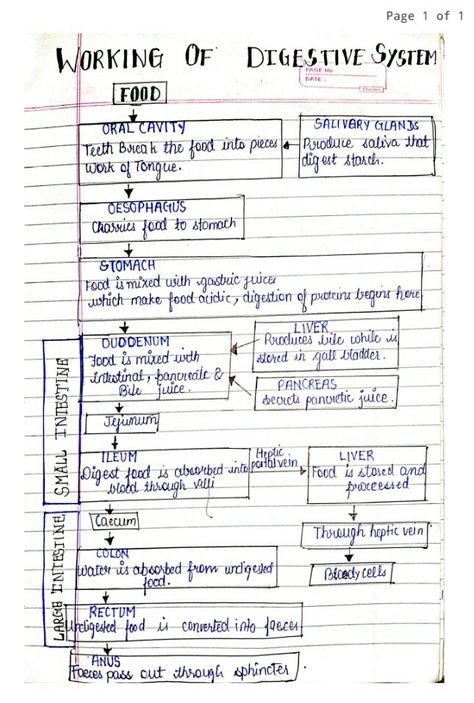 Page 1 of 1
WORKING OF DIGESTIVE SYSTEM
PAGE No
DATE:
FOOD
ORAL CAVITY
Teeth Break the food into pieces
Work of Tongue.
SALIVARY GLANDS
Produce saliva that
digest starch.
OESOPHAGUS
Charries food to stomach
STOMACH
Food is mixed with gastric juices
which make food acidic, digestion of proteins begins here
SMALL INTESTINE
DUODENUM
Food is mixed with
intestinal, pancreatic &
Bile juice.
LIVER
Produces bile while is
stored in gall bladder.
PANCREAS
secrets pancretic juice.
Jejunum
ILEUM
Digest food is absorbed into
blood through villi
Heptic
portal vein
LIVER
Food is stored and
proccessed
Through heptic vein
LARGE INTESTINE
Caecum
COLON
Water is absorbed from undigested
food.
RECTUM
Undigested food is converted into faeces
ANUS
Faeces pass out through sphincter.